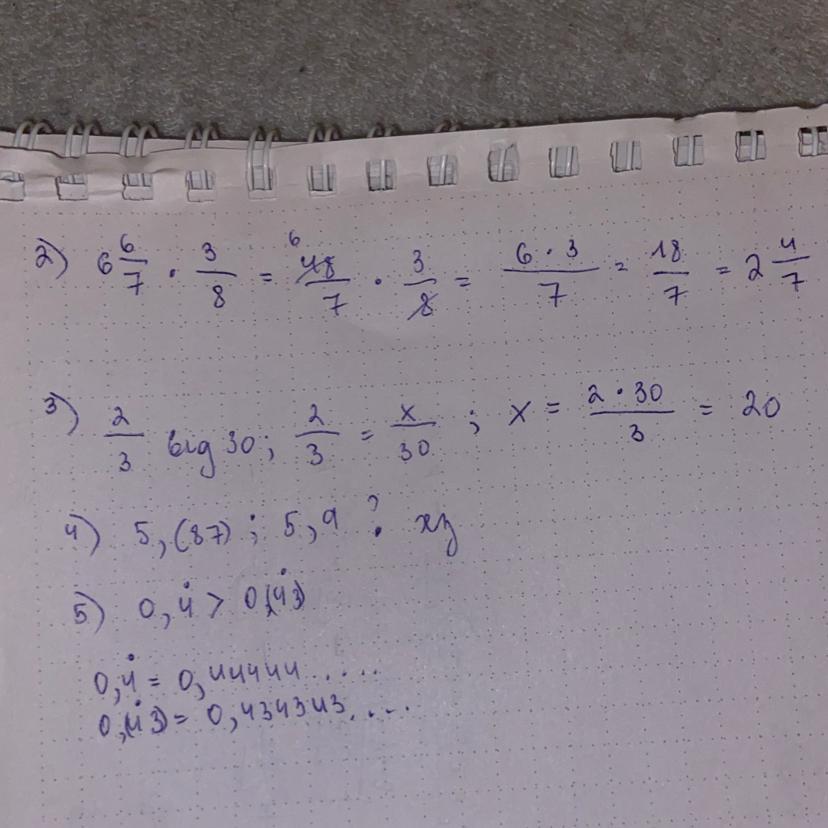 2) 6 6/7 · 3/8 = 48/7 · 3/8 = 6·3/7 = 18/7 = 2 4/7
3) 2/3 від 30; 2/3 = x/30; x = 2·30/3 = 20
4) 5,(87); 5,9 ? хз
5) 0,4̇ > 0,(4̇3)
0,4̇ = 0,44444.....
0,(4̇3) = 0,434343....